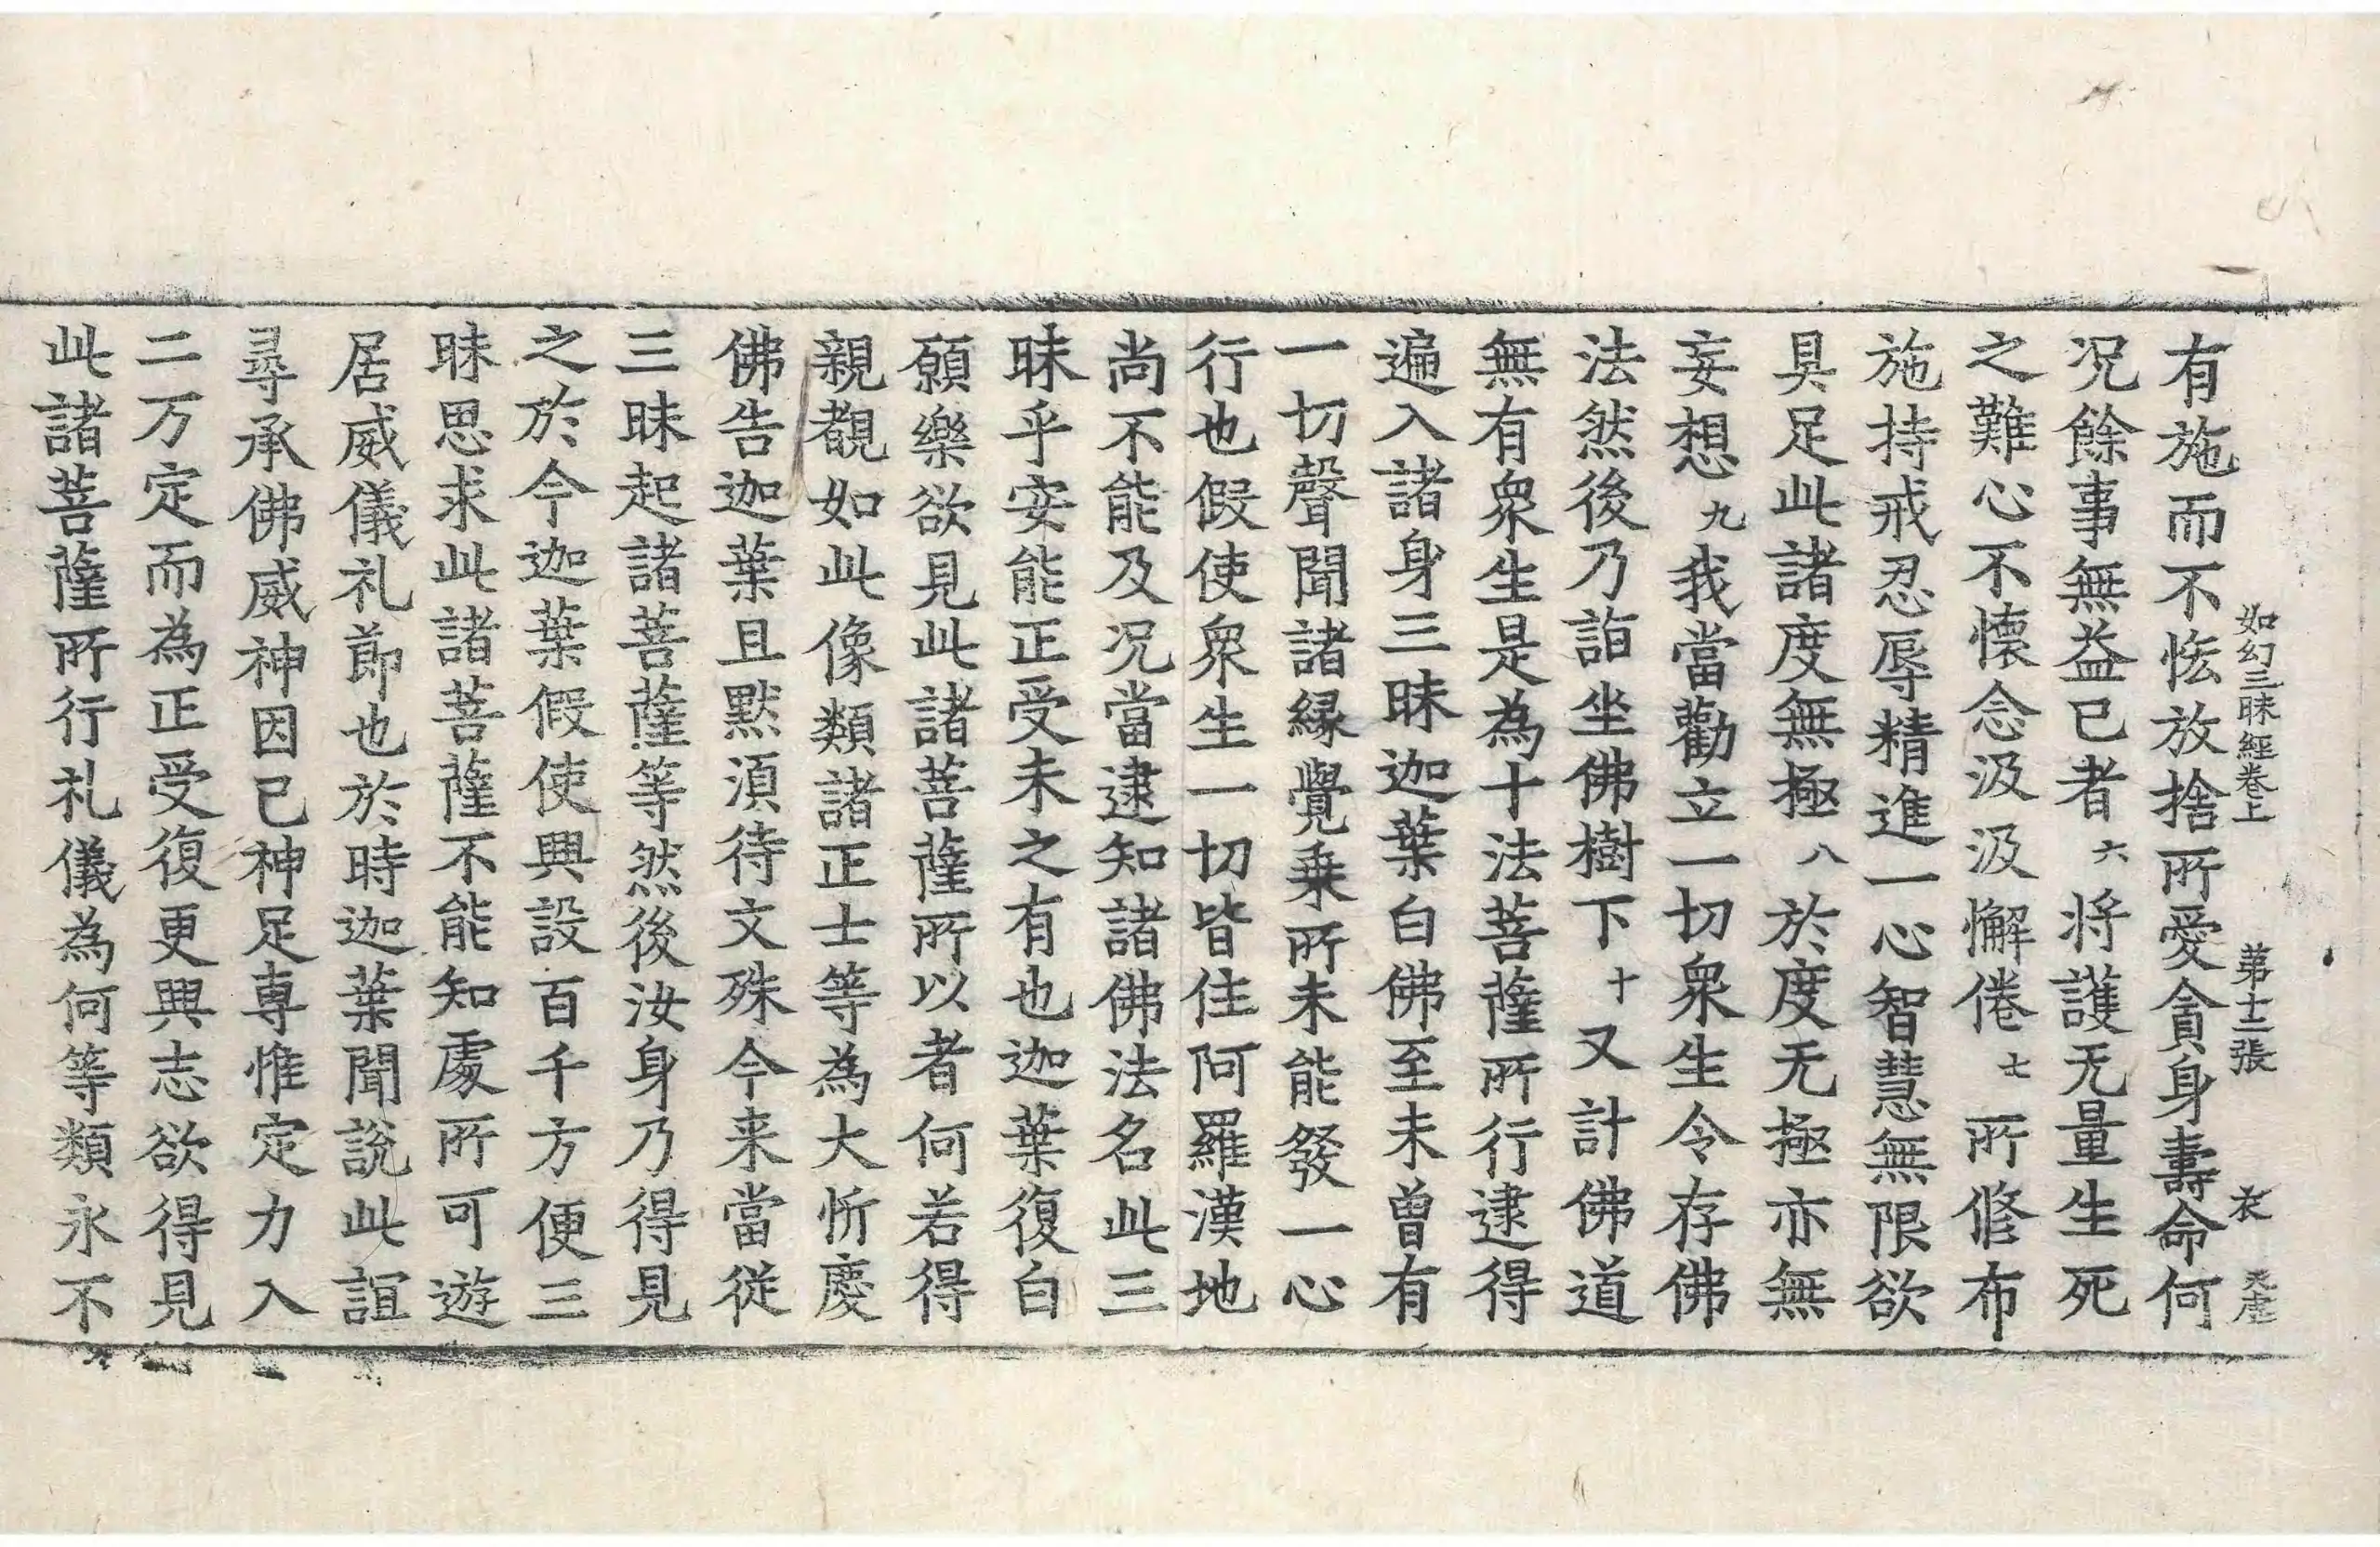 如幻三昧經卷上　第十二張　衣　天虗
有施而不恡放捨所愛貪身壽命何
况餘事無益已者六將護无量生死
之難心不懷念汲汲懈倦七所修布
施持戒忍辱精進一心智慧無限欲
具足此諸度無極八於度无極亦無
妄想九我當勸立一切衆生令存佛
法然後乃詣坐佛樹下十又計佛道
無有衆生是為十法菩薩所行逮得
遍入諸身三昧迦葉白佛至未曾有
一切聲聞諸縁覺乗所未能發一心
行也假使衆生一切皆住阿羅漢地
尚不能及况當逮知諸佛法名此三
昧乎安能正受未之有也迦葉復白
願樂欲見此諸菩薩所以者何若得
親覩如此像類諸正士等為大忻慶
佛告迦葉且默湏待文殊今来當從
三昧起諸菩薩等然後汝身乃得見
之於今迦葉假使興設百千方便三
昧思求此諸菩薩不能知處所可遊
居威儀礼節也於時迦葉聞說此誼
尋承佛威神因己神足専惟定力入
二万定而為正受復更興志欲得見
此諸菩薩所行礼儀為何等類永不